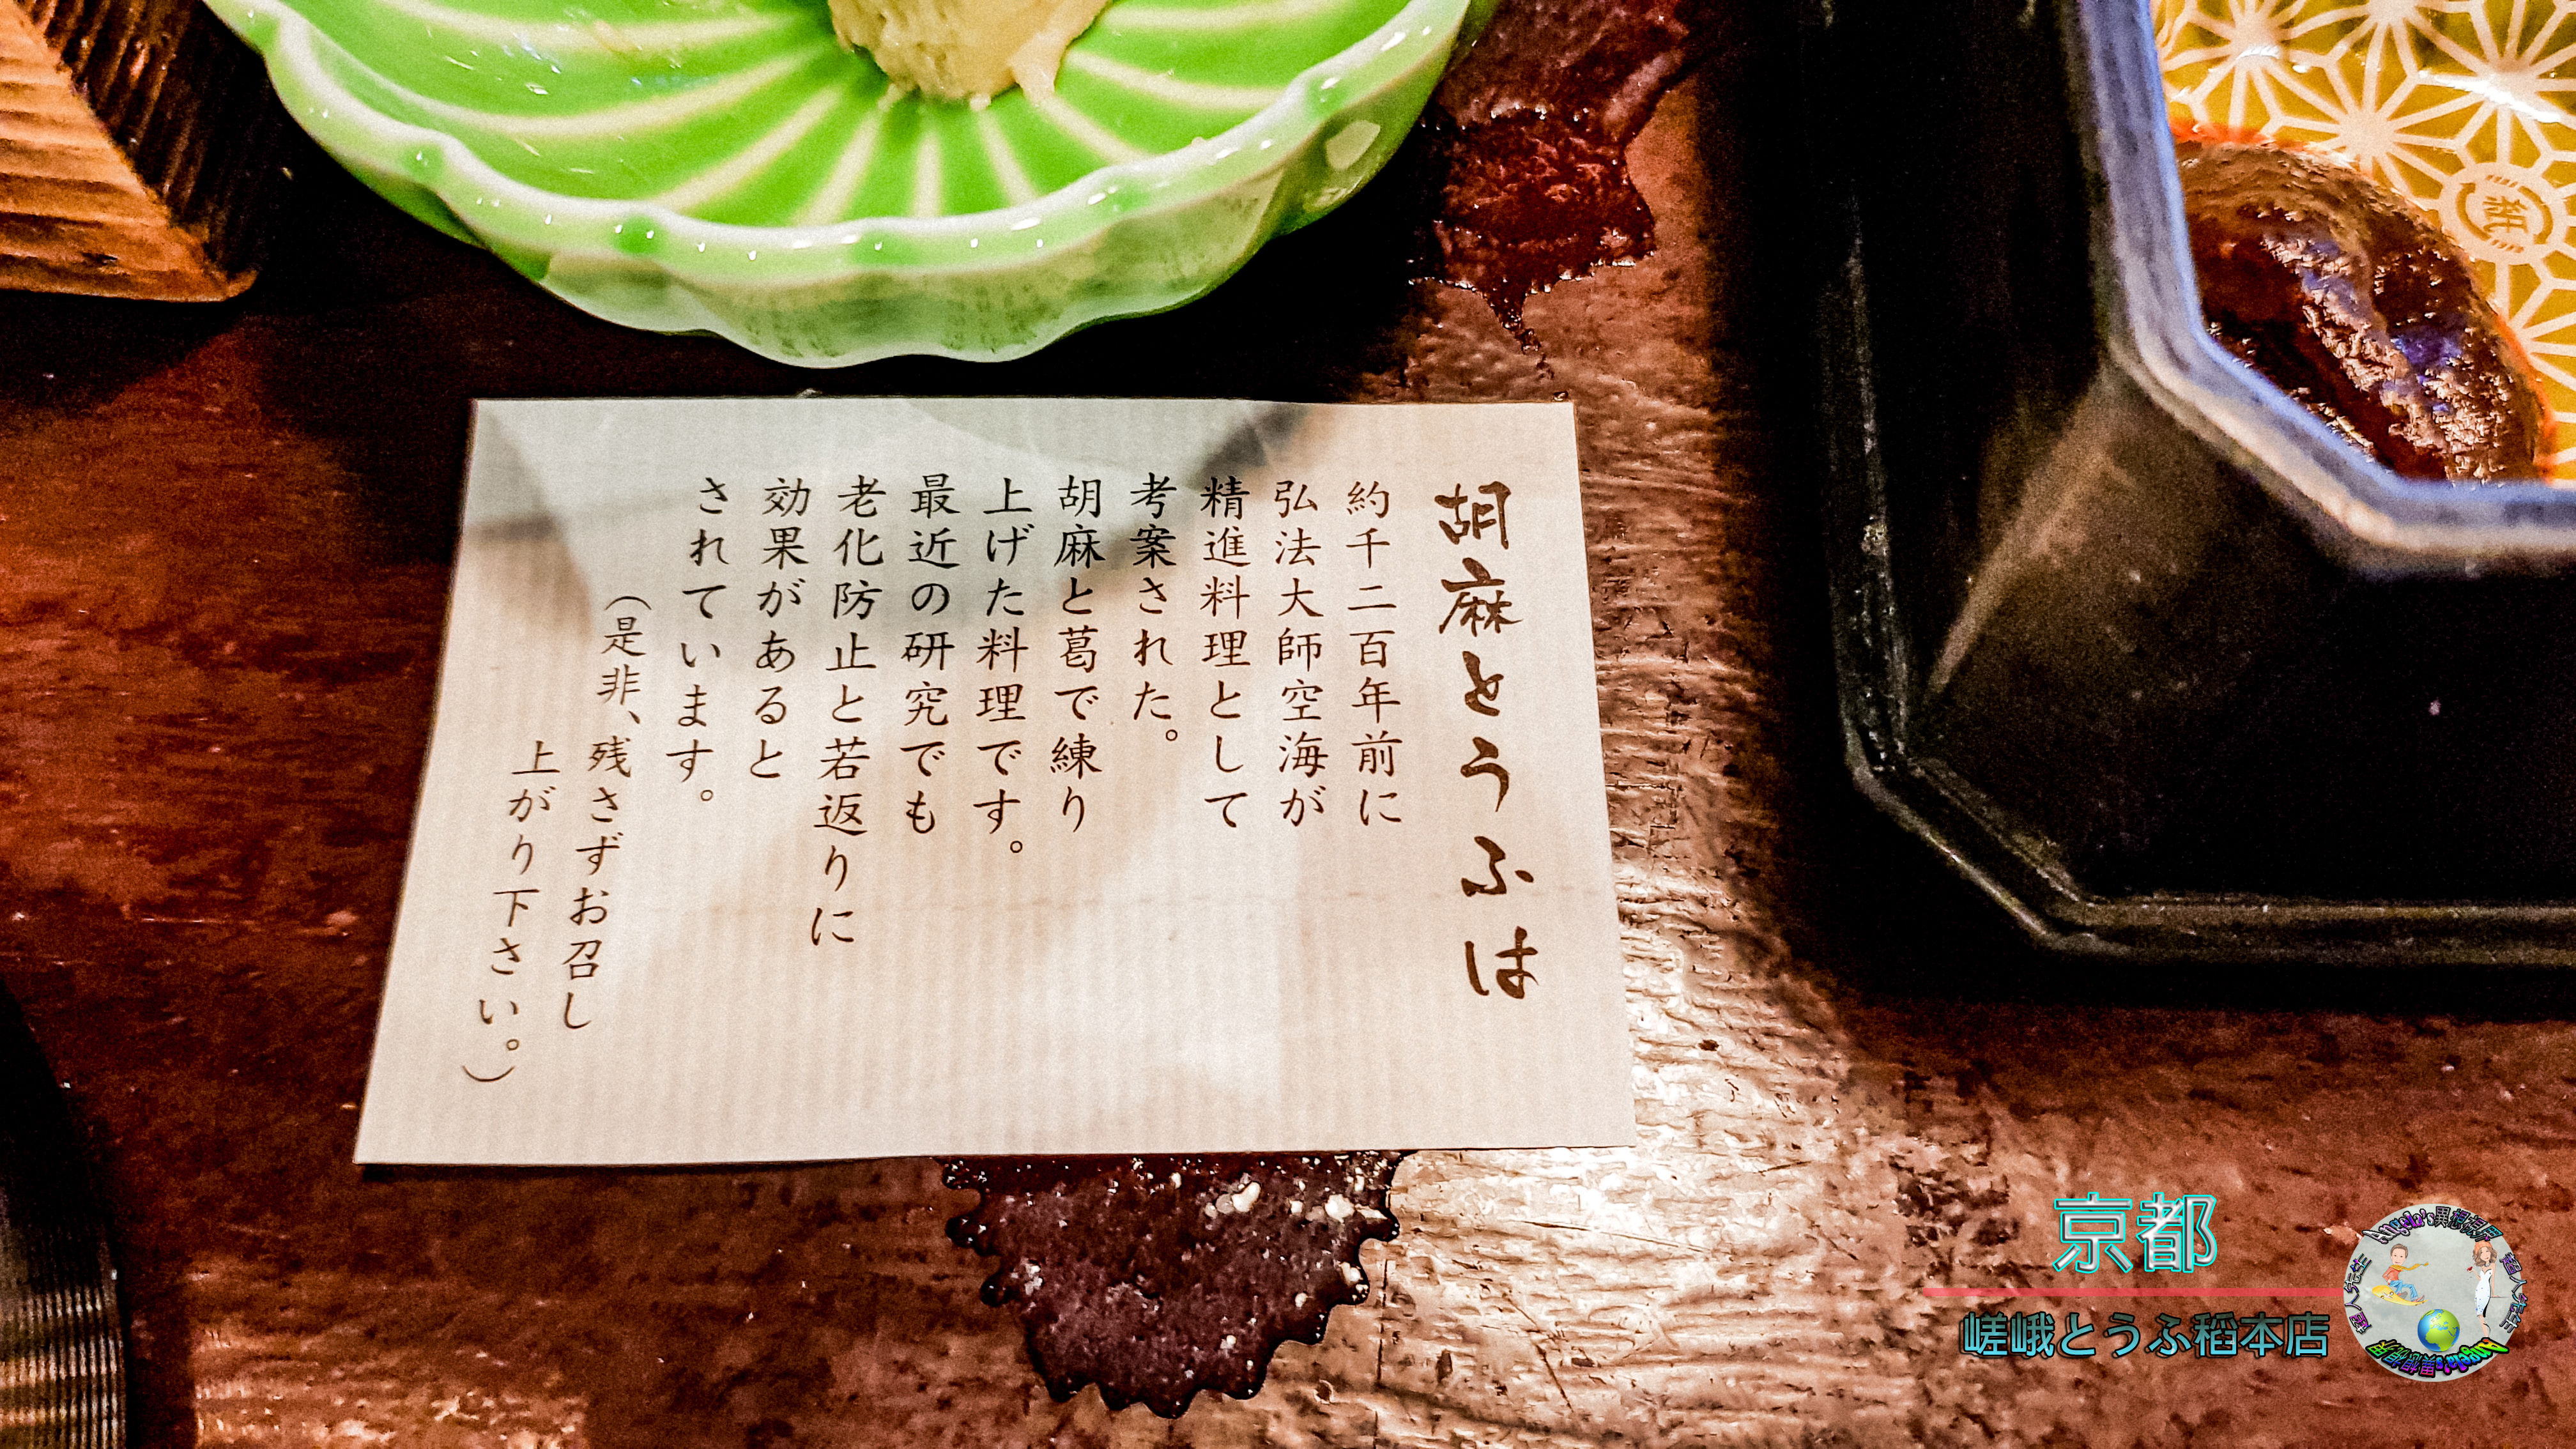 胡麻とうふは
約千二百年前に
弘法大師空海が
精進料理として
考案された。
胡麻と葛で練り
上げた料理です。
最近の研究でも
老化防止と若返りに
効果があると
されています。
（是非、残さずお召し
上がり下さい。）
京都
嵯峨とうふ稻本店
Angela's異想視界
超人先生
Angela's異想視界